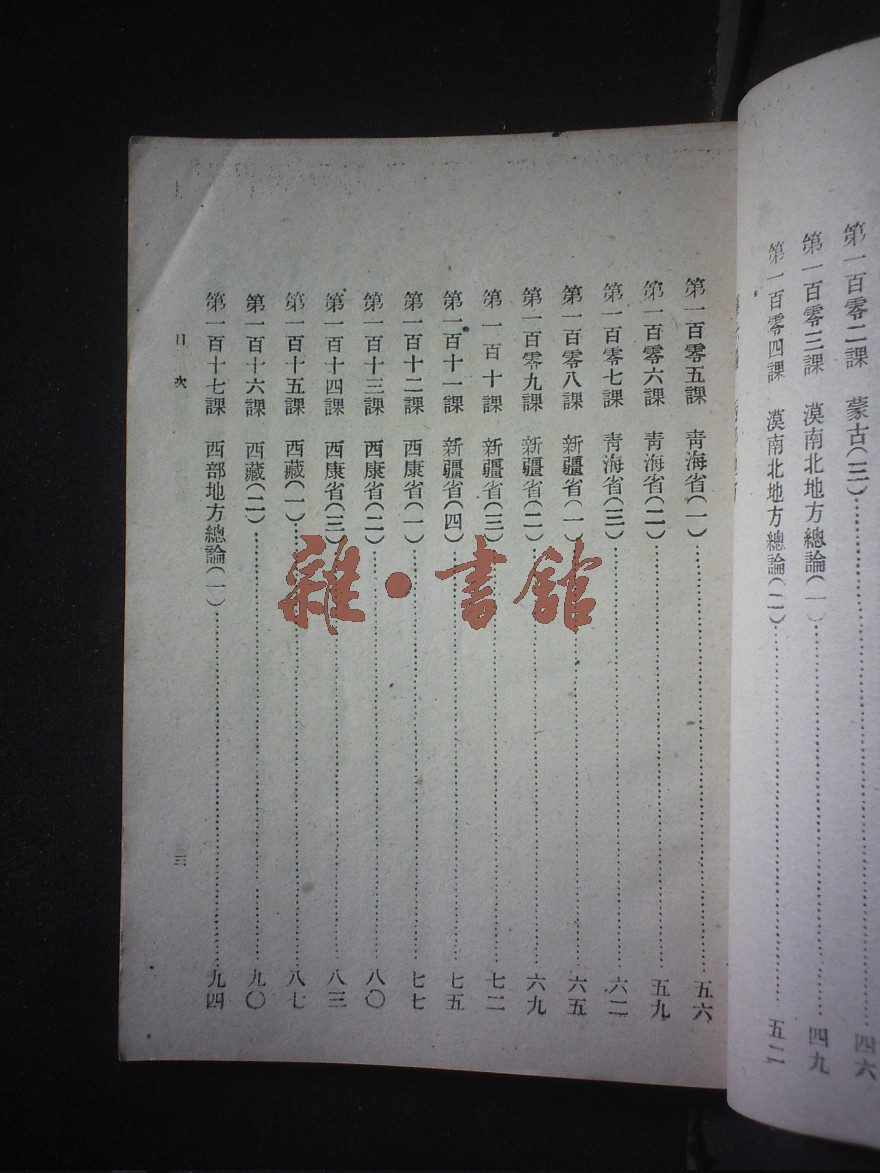 第一百零二課　蒙古(三)……四六
第一百零三課　漠南北地方總論(一)……四九
第一百零四課　漠南北地方總論(二)……五二
第一百零五課　靑海省(一)……五六
第一百零六課　靑海省(二)……五九
第一百零七課　靑海省(三)……六二
第一百零八課　新疆省(一)……六五
第一百零九課　新疆省(二)……六九
第一百十課　新疆省(三)……七二
第一百十一課　新疆省(四)……七五
第一百十二課　西康省(一)……七七
第一百十三課　西康省(二)……八〇
第一百十四課　西康省(三)……八三
第一百十五課　西藏(一)……八七
第一百十六課　西藏(二)……九〇
第一百十七課　西部地方總論(一)……九四
目次　三
雜·書館